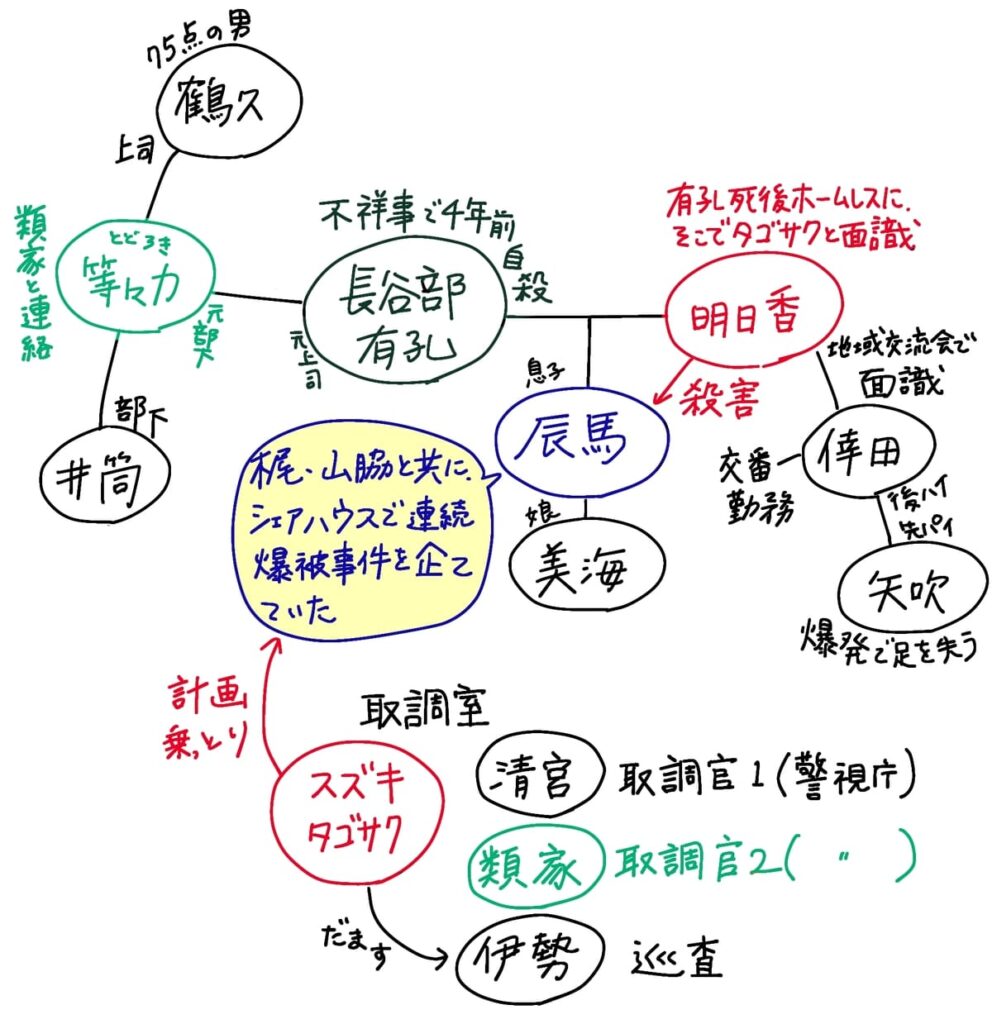 75点の男
鶴久
上司
とどろき
等々力
類家と連絡
元部下
部下
井筒
不祥事で4年前
自殺
長谷部
有孔
元上司
有孔死後ホームレスに、
そこでタゴサクと面識
明日香
殺害
息子
辰馬
娘
美海
地域交流会で
面識
倖田
交番
勤務
後ハイ
先パイ
矢吹
爆発で足を失う
梶・山脇と共に、
シェアハウスで連続
爆被事件を企て
ていた
計画
乗っとり
取調室
スズキ
タゴサク
清宮 取調官1(警視庁)
類家 取調官2( 〃 )
だます
伊勢 巡査